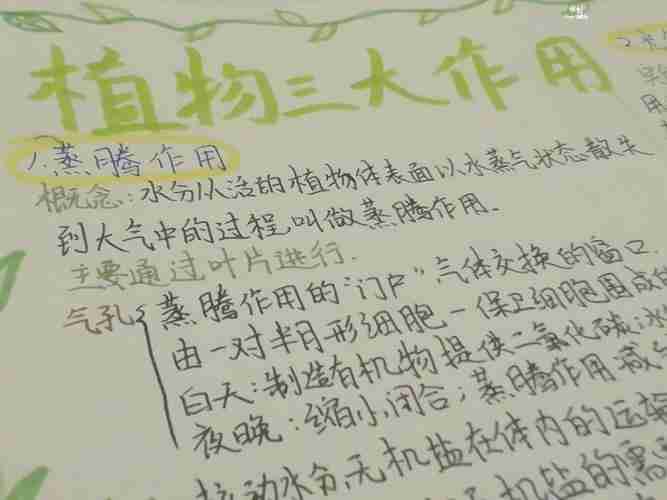 植物三大作用
1.蒸腾作用
概念:水分从活的植物体表面以水蒸气状态散失
到大气中的过程,叫做蒸腾作用.
主要通过叶片进行.
气孔
蒸腾作用的"门户",气体交换的窗口
由一对半月形细胞—保卫细胞围成的
白天:制造有机物提供二氧化碳;水
夜晚:缩小,闭合;蒸腾作用减
拉动水分,无机盐在体内的运输
无机盐的需
2.光
用